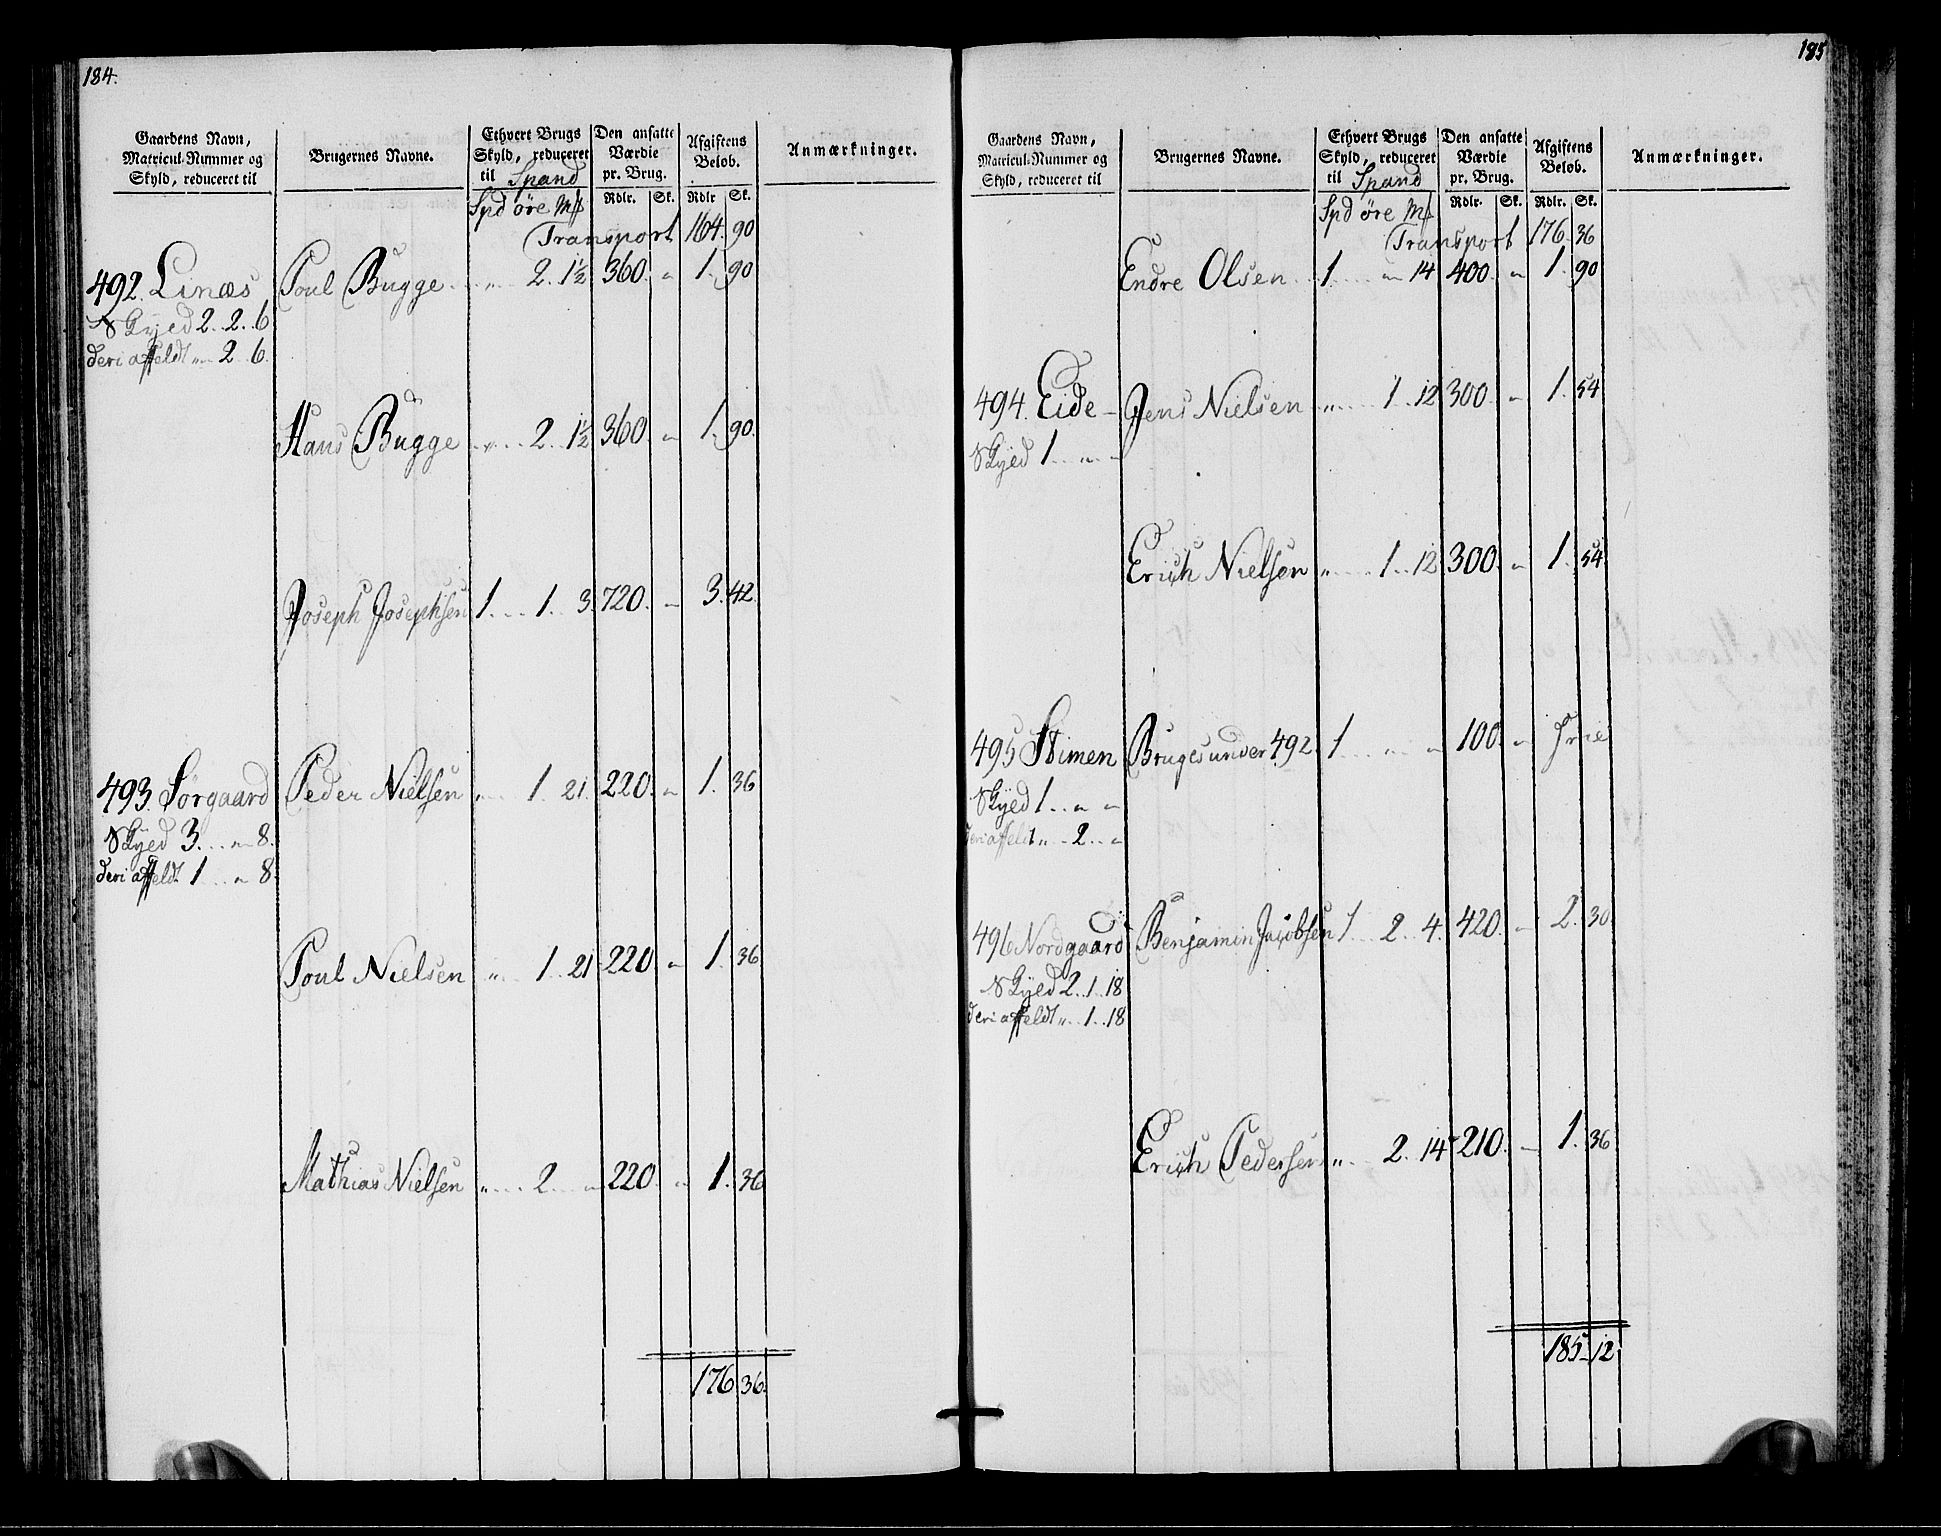 184.
Gaardens Navn, Matricul-Nummer og Skyld, reduceret til
Brugernes Navne.
Ethvert Brugs Skyld, reduceret til Spand
Den ansatte Værdie pr. Brug.
Afgiftens Beløb.
Anmærkninger.
Spd øre Mk
Rdlr. Sk. Rdlr Sk.
Transport 164. 90
492. Linæs Poul Bugge „ 2. 1½ 360. „ 1. 90
Skyed 2. 2. 6
deri affeldt „ 2 6.
Hans Bugge „ 2. 1½ 360. „ 1. 90.
Joseph Josephsen 1. 1. 3. 720. „ 3. 42.
493. Sørgaard Peder Nielsen „ 1. 21. 220. „ 1. 36
Skyed 3. „ 8.
deri affeldt 1 „ 8
Poul Nielsen „ 1. 21 220 „ 1. 36
Mathias Nielsen „ 2 „ 220. „ 1. 36
176 36.
185
Gaardens Navn, Matricul-Nummer og Skyld, reduceret til
Brugernes Navne.
Ethvert Brugs Skyld, reduceret til Spand
Den ansatte Værdie pr. Brug.
Afgiftens Beløb.
Anmærkninger.
Spd øre Mk
Rdlr. Sk. Rdlr. Sk.
Transport 176. 36
Endre Olsen 1 „ 14 400. „ 1. 90
494. Eide Jens Nielsen „ 1. 12 300. „ 1. 54
Skyed 1 „ „
Erich Nielsen „ 1. 12 300. „ 1. 54
495 Stimen Bruges under 492. 1 „ „ 100. „ frie
Skyed 1 „ „
deri affeldt „ 2. „
496 Nordgaard Benjamin Jacobsen 1 2. 4. 420. „ 2. 30.
Skyed 2. 1. 18
deri affeldt „ 1. 18
Erich Pedersen „ 2. 14 210. „ 1. 36
185 12